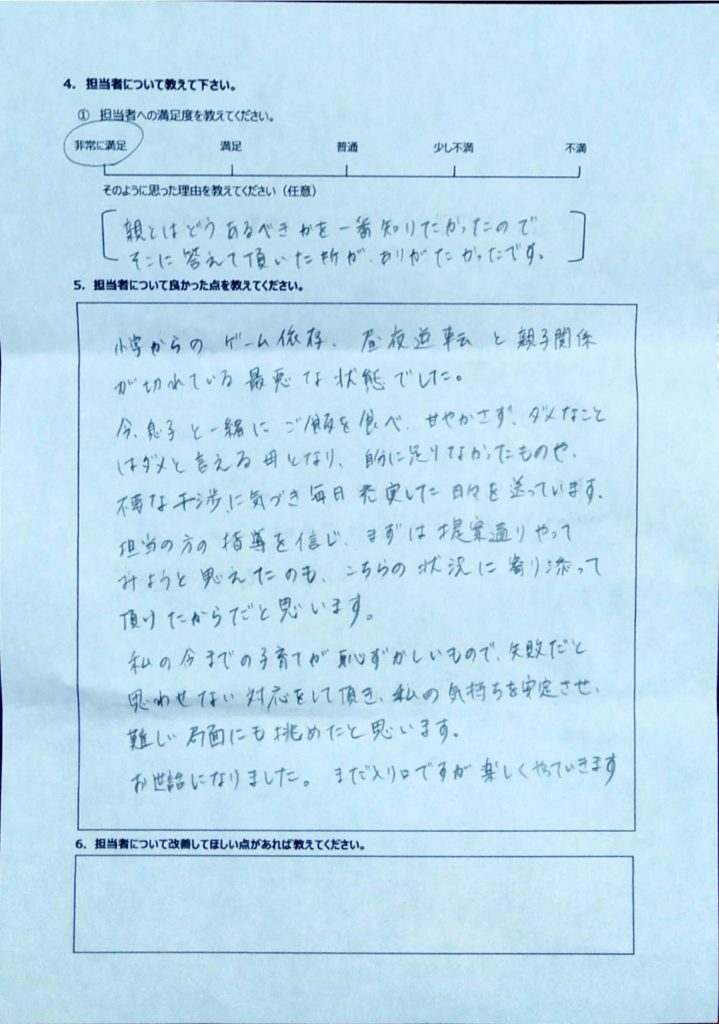 4. 担当者について教えて下さい。
① 担当者への満足度を教えてください。
非常に満足 満足 普通 少し不満 不満
そのように思った理由を教えてください（任意）
親とはどうあるべきかを一番知りたかったので
そこに答えて頂いた所が、ありがたかったです。
5. 担当者について良かった点を教えてください。
小学からの ゲーム依存、昼夜逆転 と 親子関係
が切れている 最悪な状態でした。
今、息子と一緒に ご飯を食べ、甘やかさず、ダメなこと
はダメと言える母となり、自分に足りなかったものや、
不要な干渉に気づき毎日充実した日々を送っています。
担当の方の指導を信じ、まずは提案通りやって
みようと思えたのも、こちらの状況に寄り添って
頂けたからだと思います。
私の今までの子育てが恥ずかしいもので、失敗だと
思わせない対応をして頂き、私の気持ちを安定させ、
難しい局面にも挑めたと思います。
お世話になりました。まだ入り口ですが楽しくやっていきます
6. 担当者について改善してほしい点があれば教えてください。